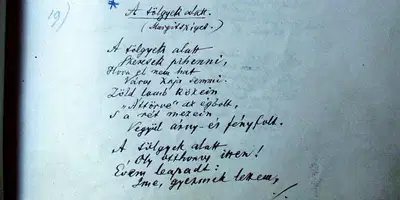 19)
A tölgyek alatt.
(Margitsziget.)
A tölgyek alatt
Szeretek pihenni,
Hova el nem hat
Város zaja semmi.
Zöld lomb közein
"Áttörve" az égbolt,
S a rét mezein
Vegyül árny- és fényfolt.
A tölgyek alatt
Oly otthonos itten!
Évem leapadt:
Ime, gyermek lettem,